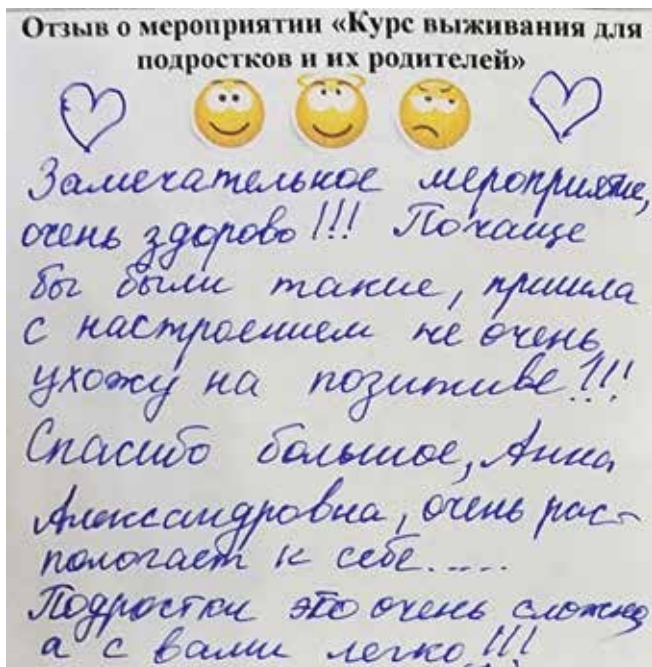 Отзыв о мероприятии «Курс выживания для
подростков и их родителей»
Замечательное мероприятие,
очень здорово!!! Почаще
бы были такие, пришла
с настроением не очень,
ухожу на позитиве!!!
Спасибо большое, Анна
Александровна, очень рас-
пологает к себе.....
Подростки это очень сложно,
а с вами легко!!!